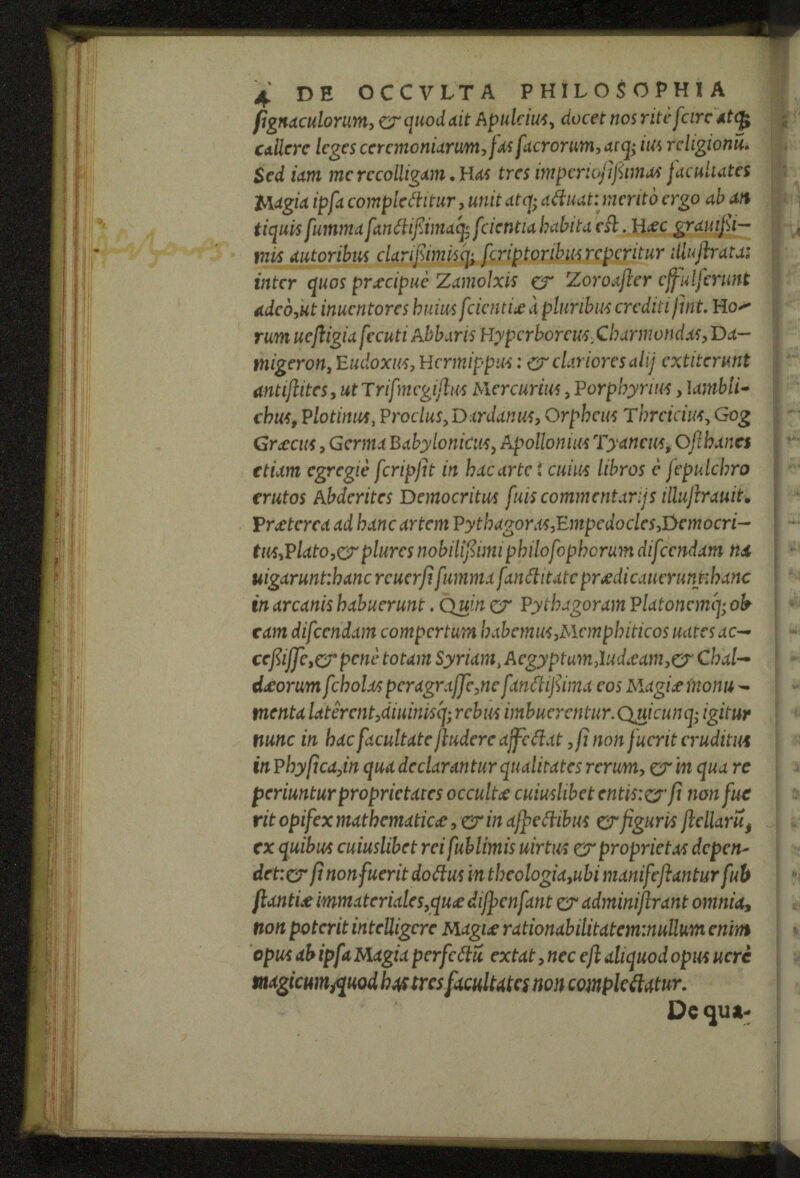 4 DE OCCVLTA PHILOSOPHIA
ſignaculorum, & quod ait Apuleius, docet nos ritè ſcire atq;
callere leges ceremoniarum, fas ſacrorum, atq; ius religionũ.
Sed iam me recolligam. Has tres imperioſiſsimas facultates
Magia ipſa complectitur, unit atq; actuat: merito ergo ab an
tiquis ſumma ſanctiſsimaq; ſcientia habita eſt. Hæc grauiſsi–
mis autoribus clariſsimisq; ſcriptoribus reperitur illuſtrata:
inter quos præcipuè Zamolxis & Zoroaſter effulſerunt
adeò, ut inuentores huius ſcientiæ à pluribus crediti ſint. Ho-
rum ueſtigia ſecuti Abbaris Hyperboreus, Charmondas, Da–
migeron, Eudoxus, Hermippus: & clariores alij extiterunt
antiſtites, ut Triſmegiſtus Mercurius, Porphyrius, Iambli-
chus, Plotinus, Proclus, Dardanus, Orpheus Threicius, Gog
Græcus, Germa Babylonicus, Apollonius Tyaneus, Oſthanes
etiam egregiè ſcripſit in hac arte: cuius libros è ſepulchro
erutos Abderites Democritus ſuis commentarijs illuſtrauit.
Præterea ad hanc artem Pythagoras, Empedocles, Democri–
tus, Plato, & plures nobiliſsimi philoſophorum diſcendam na
uigarunt: hanc reuerſi ſumma ſanctitate prædicauerunt: hanc
in arcanis habuerunt. Quin & Pythagoram Platonemq; ob
eam diſcendam compertum habemus, Memphiticos uates ac–
ceſsiſſe, & penè totam Syriam, Aegyptum, Iudæam, & Chal–
dæorum ſcholas peragraſſe, ne ſanctiſsima eos Magiæ monu–
menta laterent, diuinisq; rebus imbuerentur. Quicunq; igitur
nunc in hac facultate ſtudere affectat, ſi non fuerit eruditus
in Phyſica, in qua declarantur qualitates rerum, & in qua re
periuntur proprietates occultæ cuiuslibet entis: & ſi non fue
rit opifex mathematicæ, & in aſpectibus & figuris ſtellarũ,
ex quibus cuiuslibet rei ſublimis uirtus & proprietas depen-
det: & ſi non fuerit doctus in theologia, ubi manifeſtantur ſub
ſtantiæ immateriales, quæ diſpenſant & adminiſtrant omnia,
non poterit intelligere Magiæ rationabilitatem: nullum enim
opus ab ipſa Magia perfectũ extat, nec eſt aliquod opus uerè
magicum, quod has tres facultates non complectatur.
De qua-